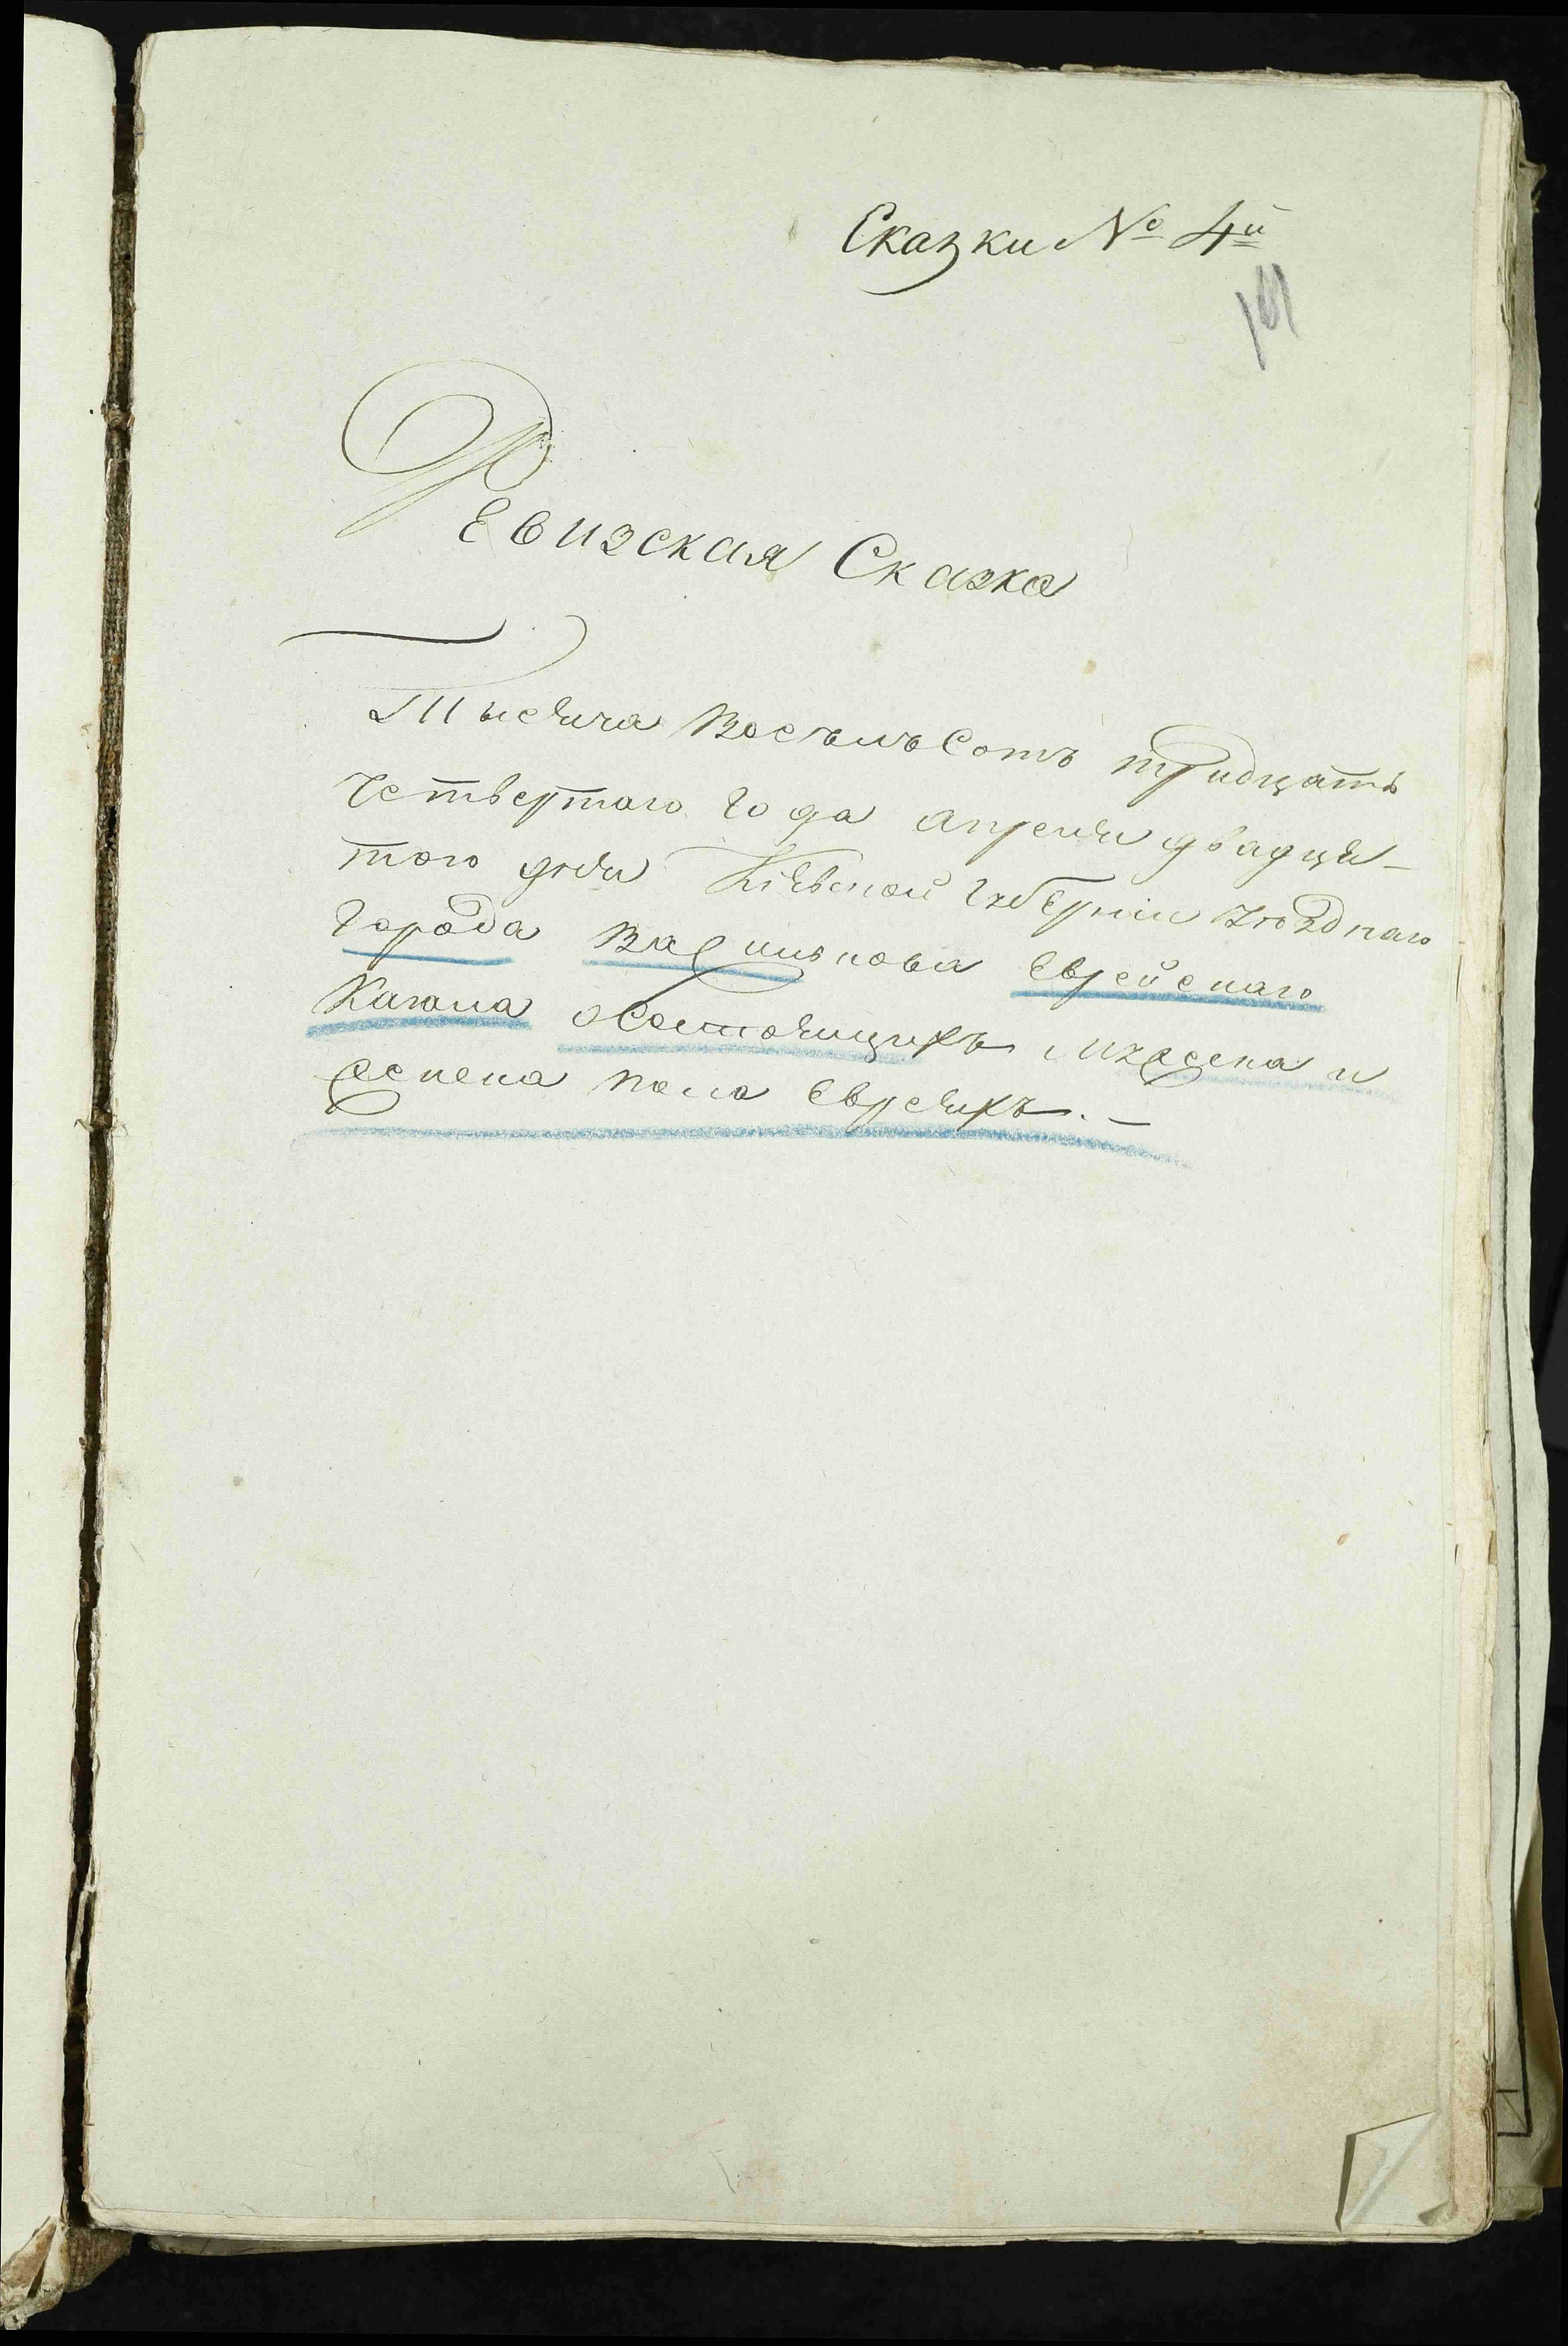 Сказки № 4й
141
Ревизская Сказка
Тысяча Восемьсотъ тридцать
четвертаго Года апреля двадця-
того дня Кіевской Губерніи уѣзднаго
Города Василькова Еврейскаго
Кагала о состоящихъ мужеска и
женска пола Евреяхъ. —